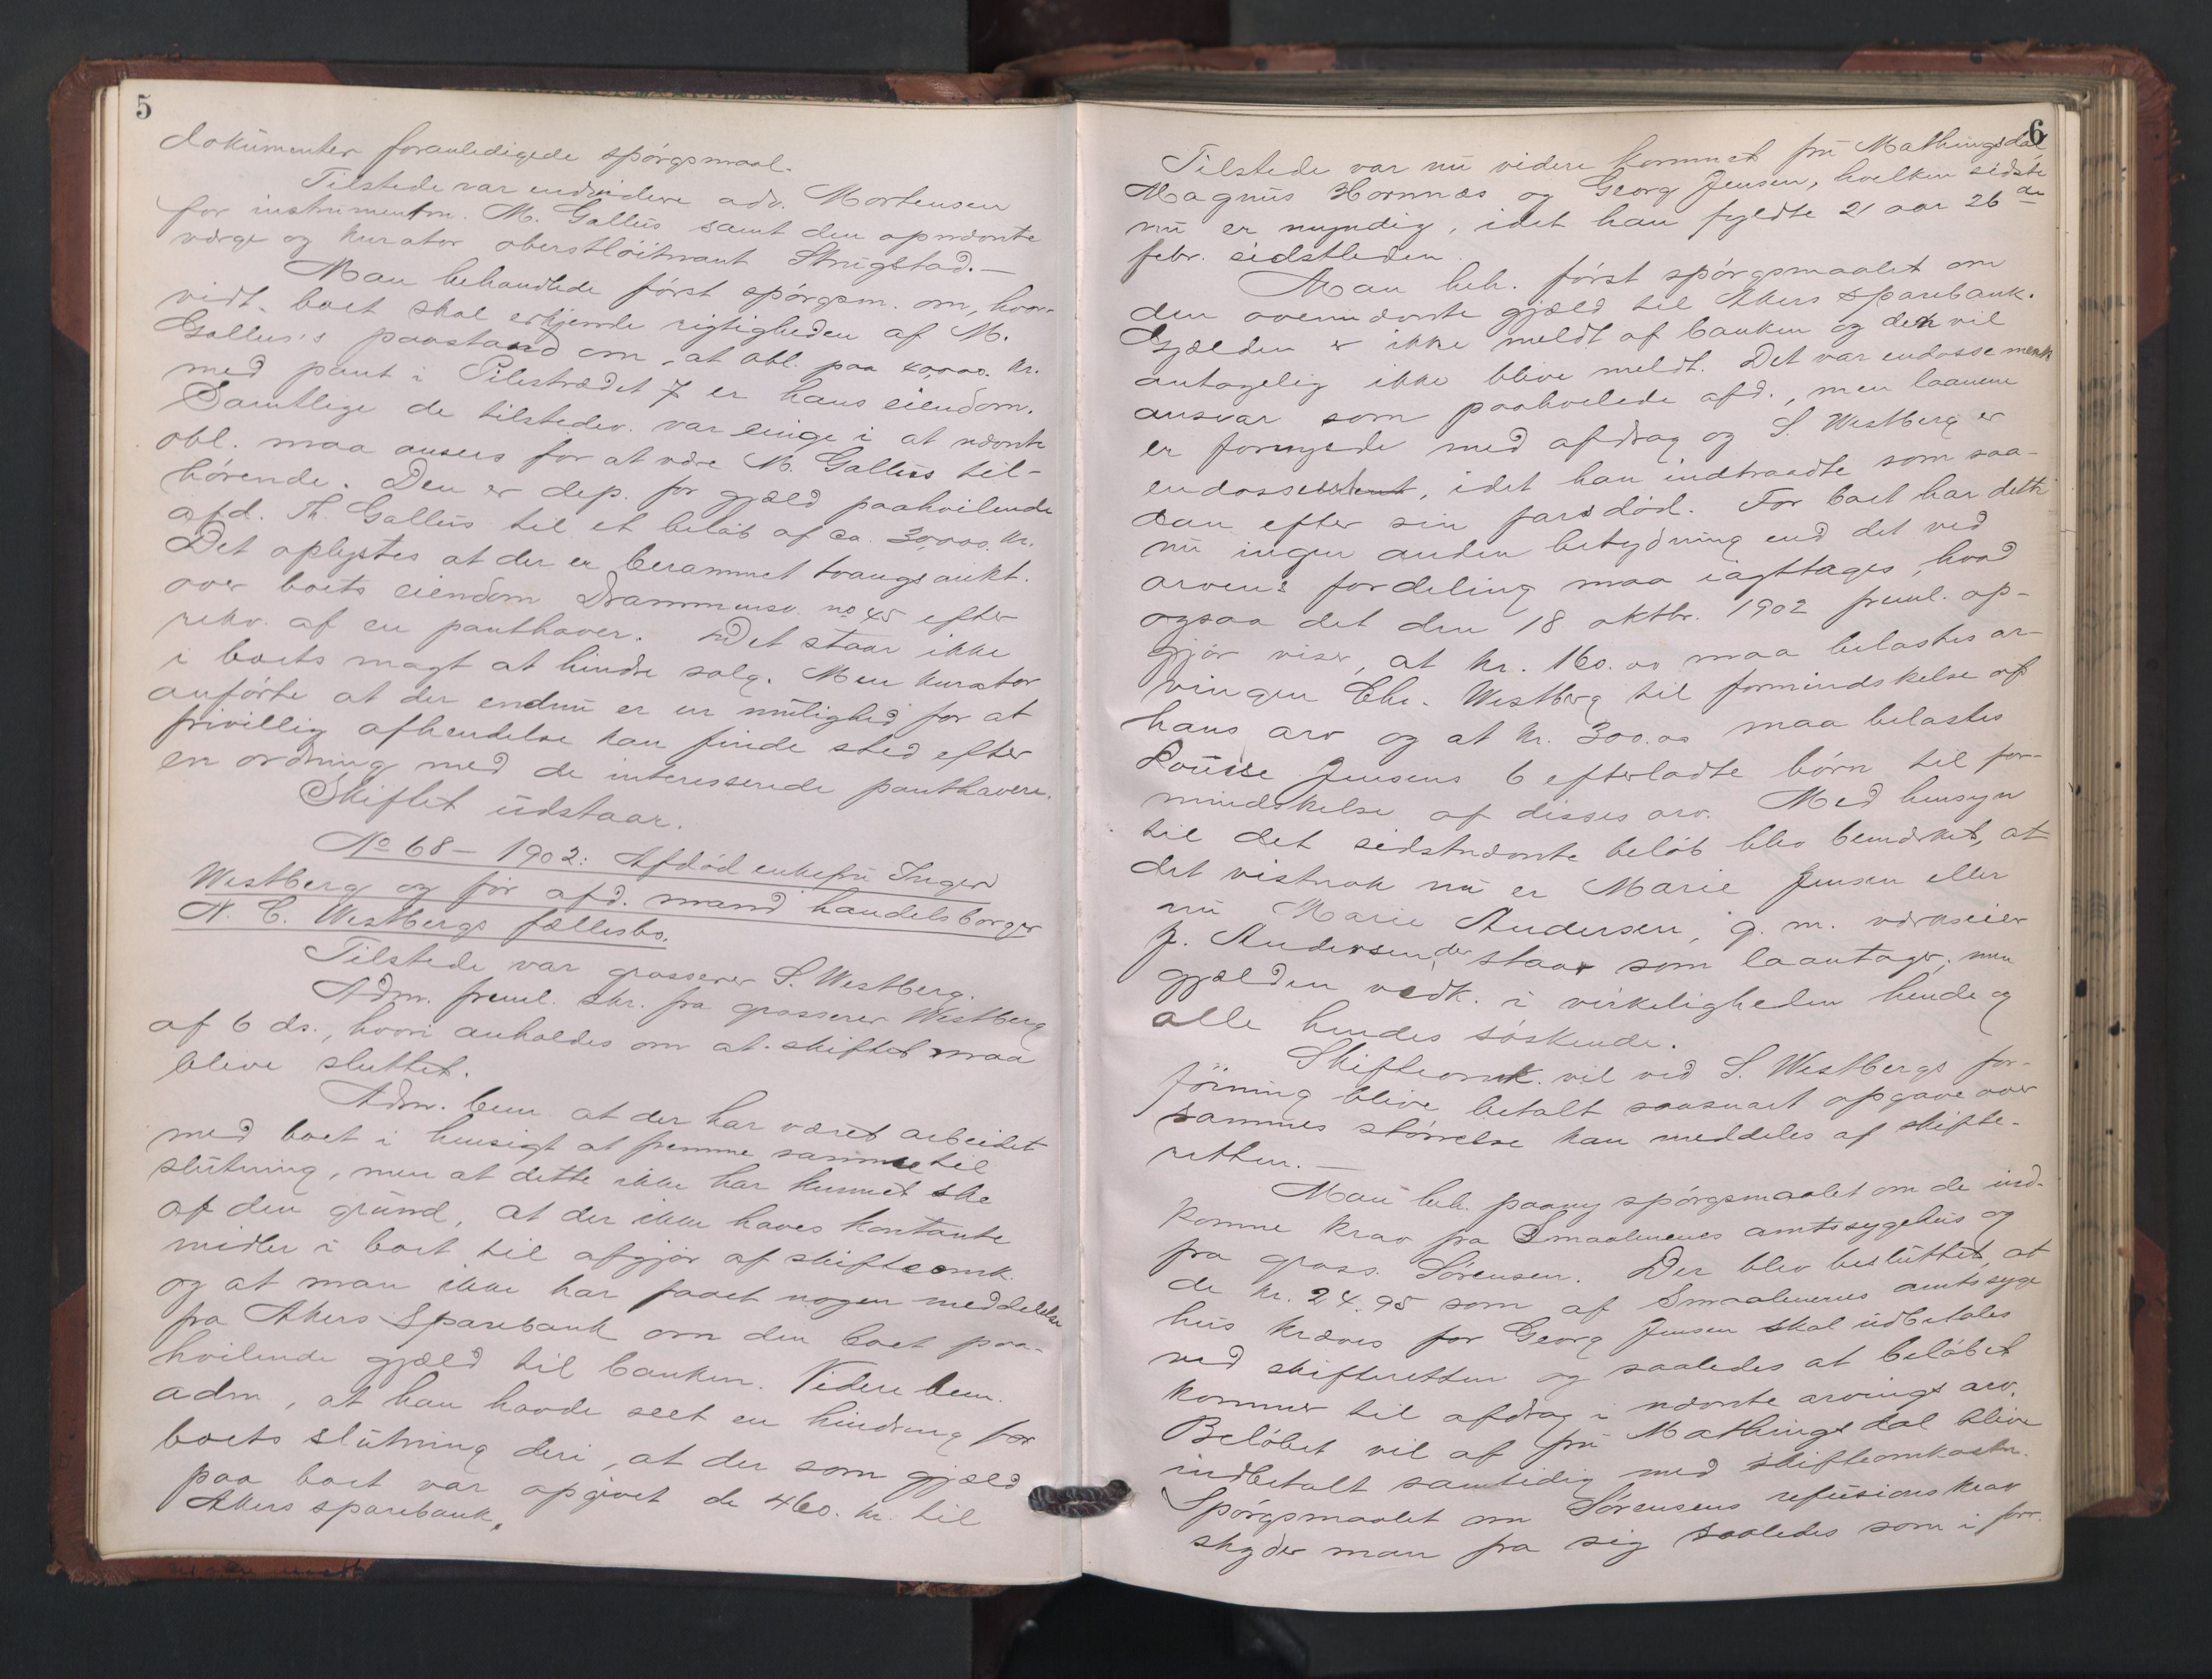 5
dokumenter foranledigede spørgsmaal.
Tilstede var endvidere adv. Mortensen
for instrumentm. M. Gallus samt den opnævnte
værge og kurator oberstløitnant Strugstad.—
Man behandlede først spørgsm. om, hvor-
vidt boet skal erkjende rigtigheden af M.
Gallus's paastand om, at obl. paa 40,000. kr.
med pant i Pilestrædet 7 er hans eiendom.
Samtlige de tilstedev. var enige i at nævnte
obl. maa ansees for at være M. Gallus til-
hørende. Den er dep. for gjæld paahvilende
afd. Th. Gallus til et beløb af ca. 30,000. kr.
Det oplystes at der er berammet tvangsaukt.
over boets eiendom Drammensv. no 45 efter
rekv. af en panthaver. Det staar ikke
i boets magt at hindre salg. Men kurator
anførte at der endnu er en mulighed for at
frivillig afhendelse kan finde sted efter
en ordning med de interesserede panthavere.
Skiftet udstaar.
No 68 - 1902: Afdød enkefru Inger
Westberg og før afd. mand handelsborger
N. C. Westbergs fællesbo.
Tilstede var grosserer S. Westberg.
Adm. freml. skr. fra grosserer Westberg
af 6 ds., hvori anholdes om at skiftet maa
blive sluttet.
Adm. bem. at der har været arbeidet
med boet i hensigt at fremme samme til
slutning, men at dette ikke har kunnet ske
af den grund, at der ikke haves kontante
midler i boet til afgjør af skifteomk.
og at man ikke har faaet nogen meddelelse
fra Akers Sparebank om den boet paa-
hvilende gjæld til banken. Videre bem.
adm, at han havde seet en hindring for
boets slutning deri, at der som gjæld
paa boet var opgivet de 460. kr. til
Akers sparebank.
6
Tilstede var nu videre kommet fru Mathingsdal
Magnus Hornnæs og Georg Jensen, hvilken sidste
nu er myndig, idet han fyldte 21 aar 26de
febr. sidstleden.
Man beh. først spørgsmaalet om
den ovennævnte gjæld til Akers Sparebank.
Gjælden er ikke meldt af banken og den vil
antagelig ikke blive meldt. Det var endossement
ansvar som paahvilede afd., men laanene
er fornyede med afdrag og S. Westberg er
endossent, idet han indtraadte som saa-
dan efter sin fars død. For boet har dette
nu ingen anden betydning end det ved
arvens fordeling maa iagttages, hvad
ogsaa det den 18 oktbr. 1902 freml. op-
gjør viser, at kr. 160.00 maa belastes ar-
vingen Chr. Westberg til formindskelse af
hans arv og at kr. 300.00 maa belastes
Louise Jensens 6 efterladte børn til for-
mindskelse af disses arv. Med hensyn
til det sidstnævnte beløb blev bemærket, at
det vistnok nu er Marie Jensen eller
nu Marie Andersen, g. m. værkseier
J. Andersen, der staar som laantager, men
gjælden vedk. i virkeligheden hende og
alle hendes søskende.
Skifteomk. vil ved S. Westbergs for-
føining blive betalt saasnart opgave over
sammes størrelse kan meddeles af skifte-
retten.—
Man beh. paany spørgsmaalet om de ind-
komne krav fra Smaalenenes amtssygehus og
fra gross. Sørensen. Der blev besluttet, at
de kr. 24.95 som af Smaalenenes amtssyge
hus kræves for Georg Jensen skal udbetales
ved skifteretten og saaledes at beløbet
kommer til afdrag i nævnte arvings arv.
Beløbet vil af fru Mathingsdal blive
indbetalt samtidig med skifteomkostn.
Spørgsmaalet om Sørensens refusionskrav
skyder man fra sig saaledes som i forr.